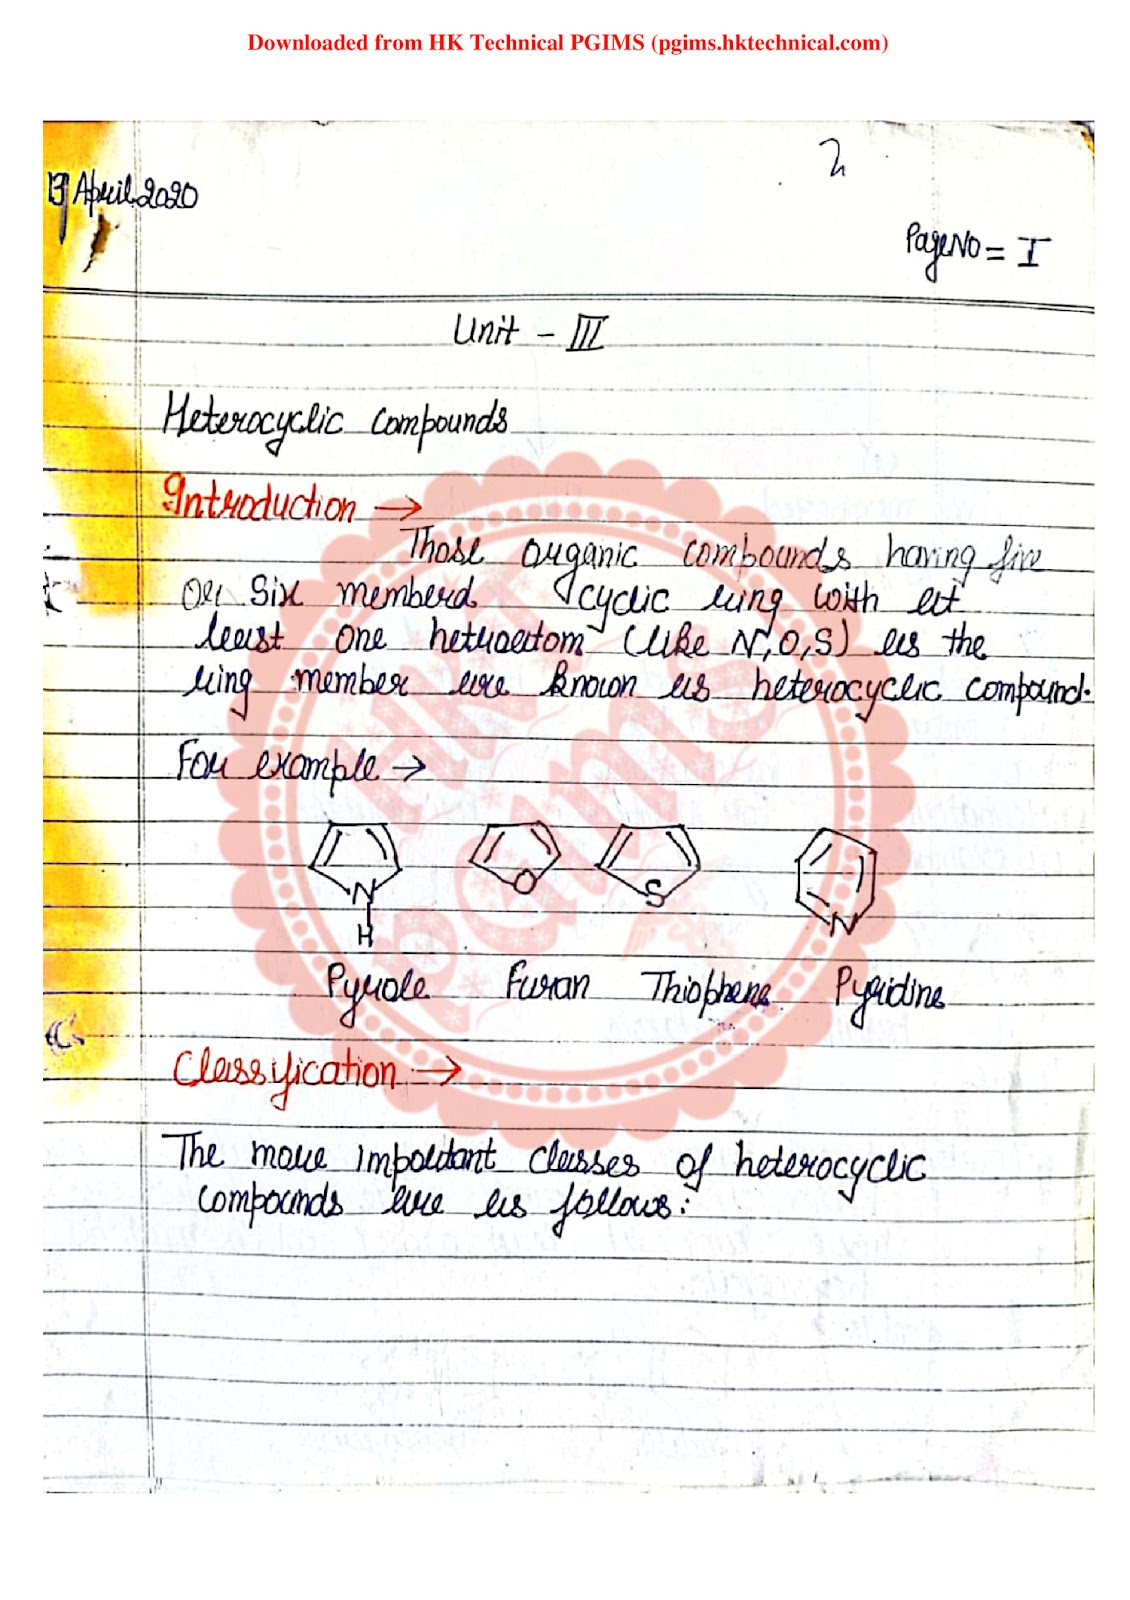 Downloaded from HK Technical PGIMS (pgims.hktechnical.com)
13 April 2020
Page No = I
Unit - III
Heterocyclic compounds
Introduction →
Those organic compounds having five
or six memberd cyclic ring with at
least one hetroatom (like N, O, S) as the
ring member are known as heterocyclic compound.
For example →
N O S N
H
Pyrole Furan Thiophene Pyridine
Classification →
The more important classes of heterocyclic
compounds are as follows: